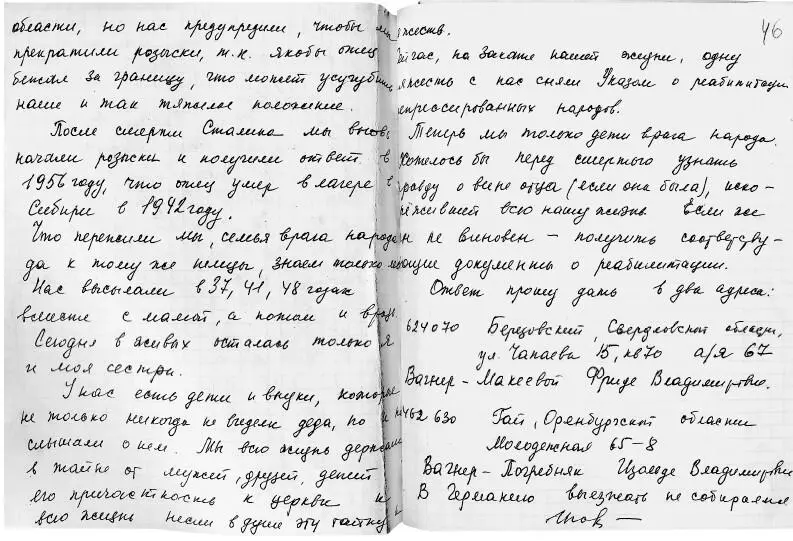 области, но нас предупредили, чтобы мы
прекратили розыски, т.к. якобы отец
бежал за границу, что может усугубить
наше и так тяжелое положение.
После смерти Сталина мы вновь
начали розыски и получили ответ в
1956 году, что отец умер в лагере в
Сибири в 1942 году.
Что пережили мы, семья врага народа
да к тому же немцы, знаем только мы
Нас высылали в 37, 41, 48 годах
вместе с мамой, а потом и врозь.
Сегодня в живых осталась только я
и моя сестра.
У нас есть дети и внуки, которые
не только никогда не видели деда, но и не
слышали о нем. Мы всю жизнь держали
в тайне от мужей, друзей, детей
его причастность к церкви и
всю жизнь несли в душе эту тайну и
46
яжесть.
йчас, на закате нашей жизни, одну
яжесть с нас сняли Указом о реабилитации
епрессированных народов.
Теперь мы только дети врага народа.
Хотелось бы перед смертью узнать
равду о вине отца (если она была), иско-
режившей всю нашу жизнь Если же
н не виновен – получить соответству-
ющие документы о реабилитации.
Ответ прошу дать в два адреса:
624070 Березовский, Свердловской области,
ул. Чапаева 15, кв 70 а/я 67
Вагнер-Макеевой Фриде Владимировне.
462 630 Гай, Оренбургской области
Молодежная 65-8
Вагнер-Погребняк Изольде Владимировне
В Германию выезжать не собираемся